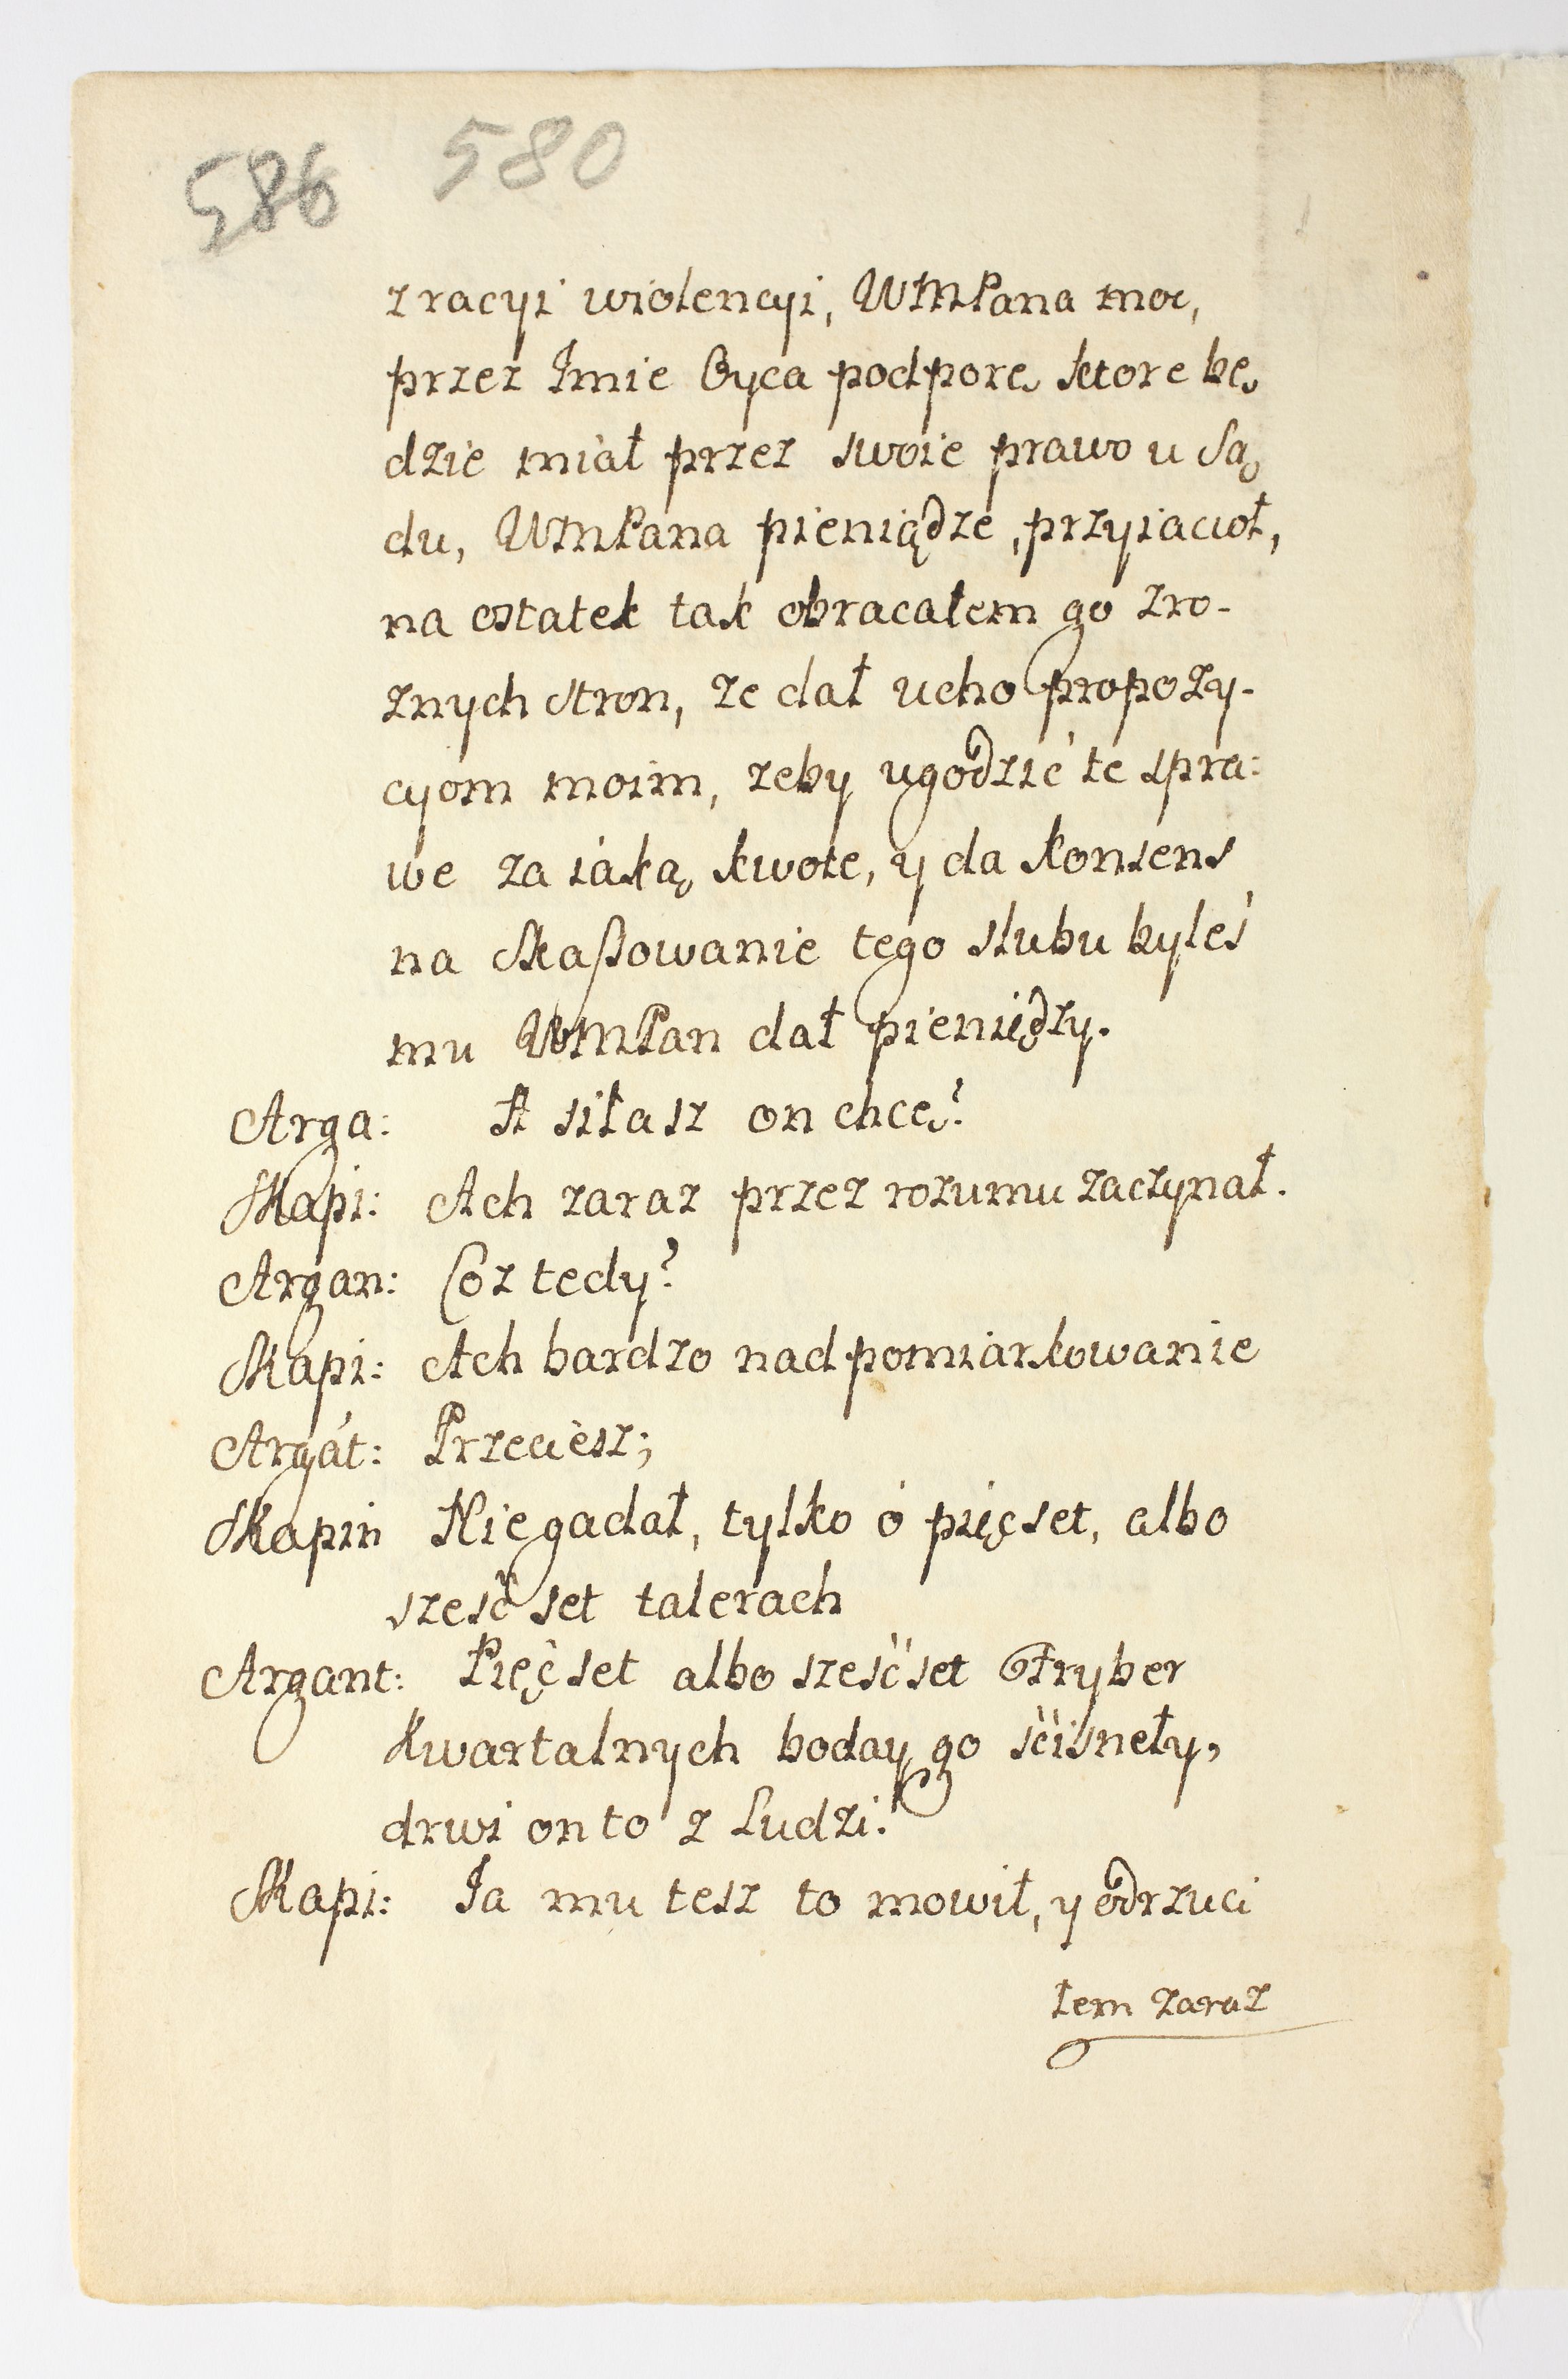 586 580
z racyi wiolencyi, WMPana moc,
przez Imie Oyca podporę ktore bę
dzie miał przez swoie prawo u Są
du, WMPana pieniądze, przyiacioł,
na ostatek tak obracałem go zro-
znych stron, ze dał ucho propozy-
cyom moim, zeby ugodzić te spra:
we za iaką kwote, y da konsens
na Skaßowanie tego slubu byleś
mu WMPan dał pieniędzy.
Arga: A siłasz on chcę?
Skapi: Ach zaraz przez rozumu zaczynał.
Argan: Coz tedy?
Skapi: Ach bardzo nad pomiarkowanie
Argát: Przeciesz;
Skapin Nie gadał, tylko ó pięcset, albo
sześć set talerach
Argant: Pięćset albo sześćset Fryber
kwartalnych boday go śćisneły,
drwi on to z Ludzi.
Skapi: Ja mu tesz to mowił, y odrzuci
łem zaraz